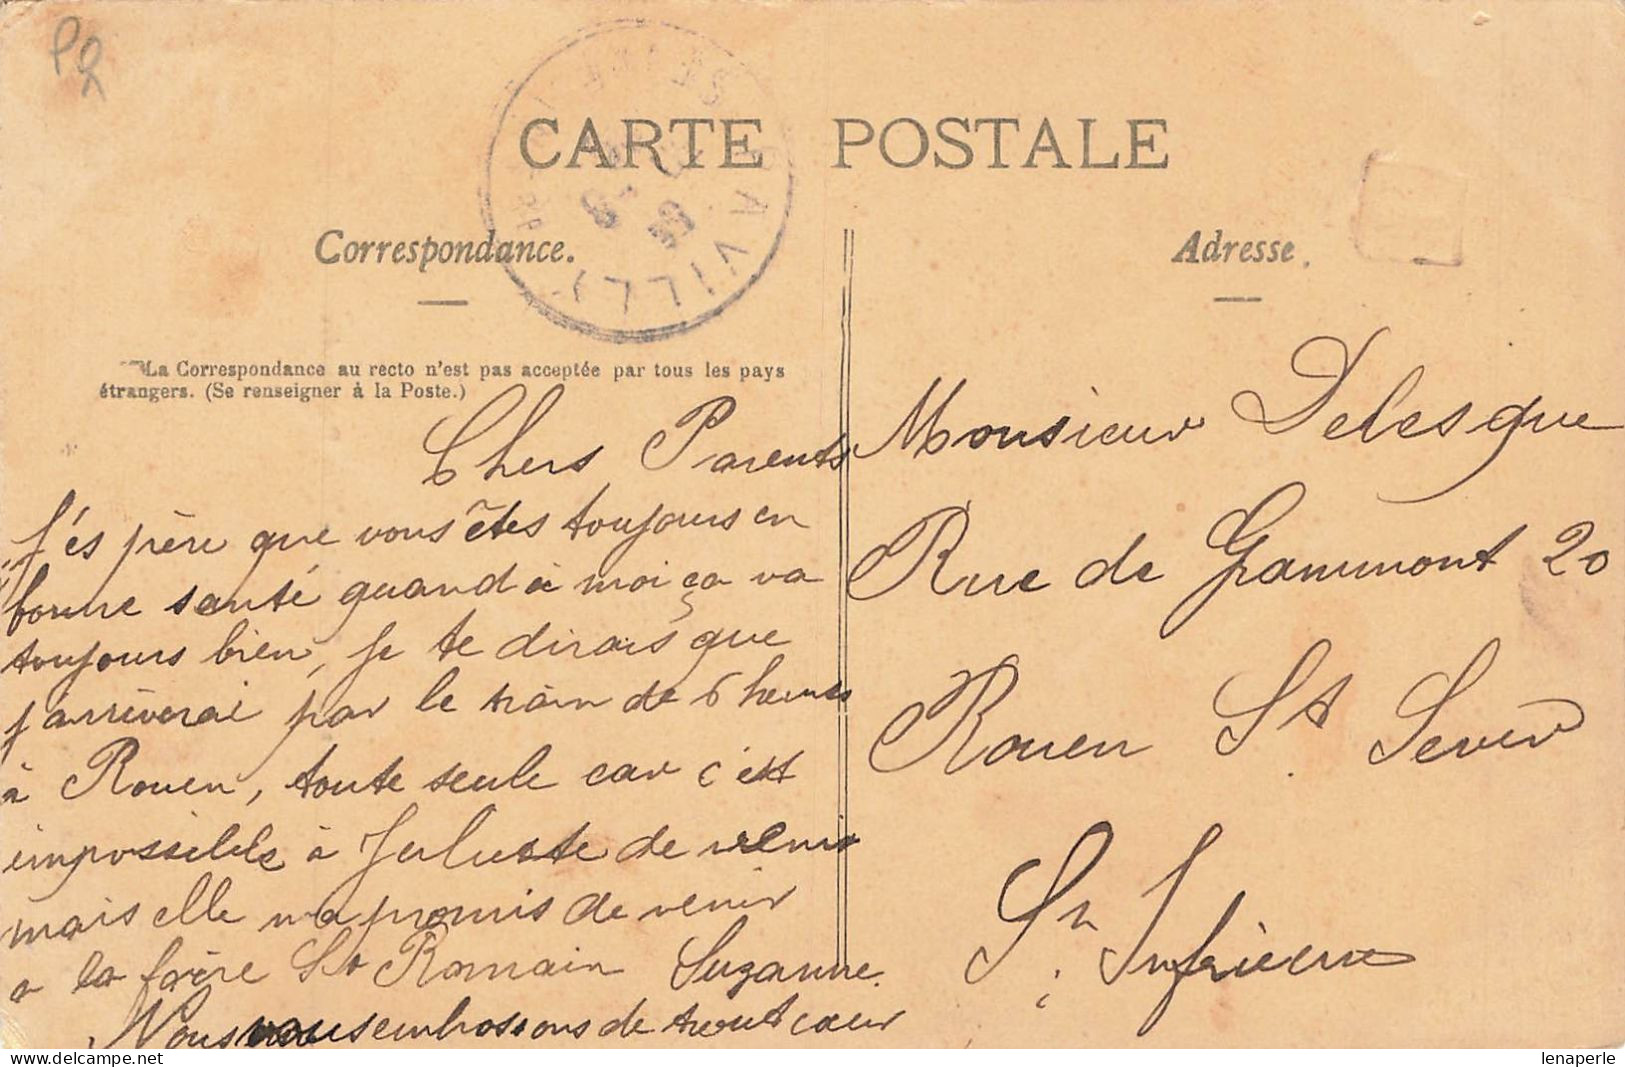 CARTE POSTALE
Correspondance.
La Correspondance au recto n'est pas acceptée par tous les pays
étrangers. (Se renseigner à la Poste.)
Chers Parents
J'és père que vous êtes toujours en
bonne santé quand à moi ça va
toujours bien, je te dirais que
j'arriverai par le train de 6 heures
à Rouen, toute seule car c'est
impossible à Juluste de venir
mais elle m'a promis de venir
a la foire St Romain Suzanne.
Nous vous embrassons de tout cœur
Adresse.
Monsieur Delesque
Rue de Grammont 20
Rouen St Sever
Sn Infrieure
VILLY
lenaperle